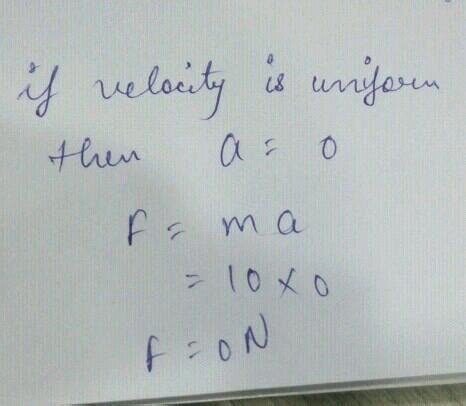 if velocity is uniform
then a = 0
F = ma
= 10 x 0
F = 0N